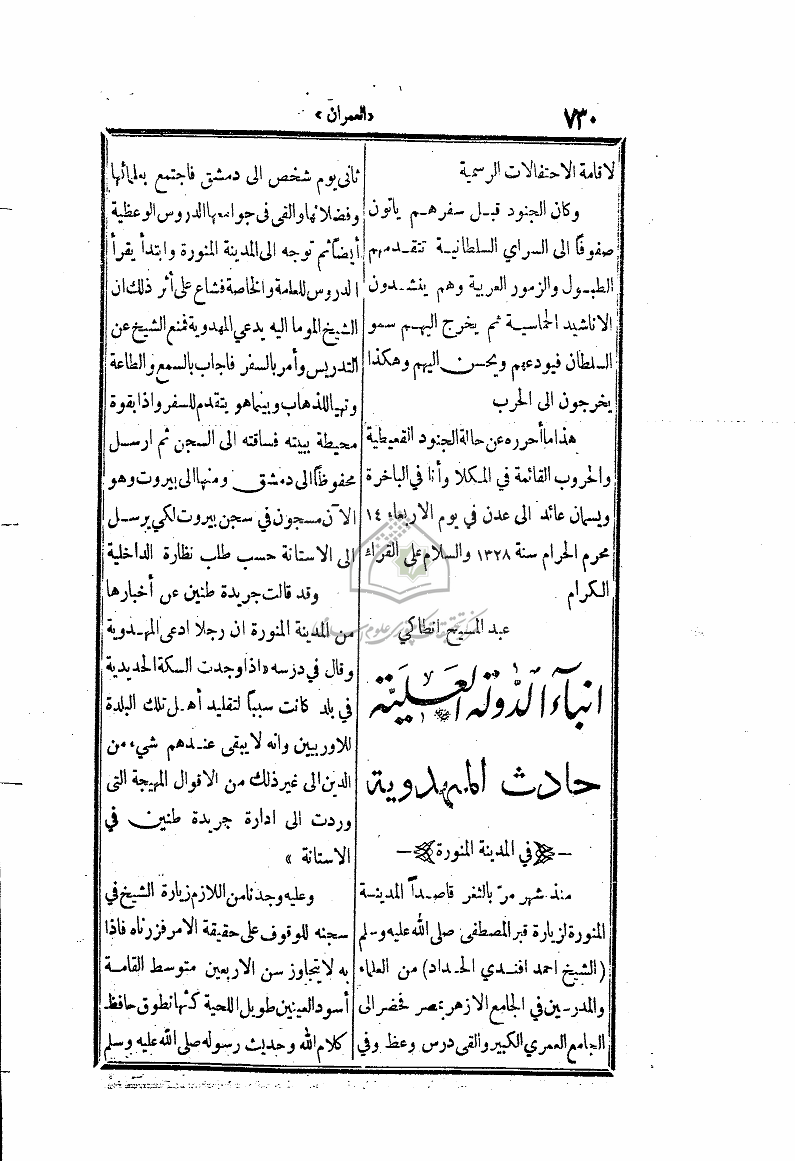 ٧٣٠
«العمران»
لاقامة الاحتفالات الرسمية
وكان الجنود قبل سفرهم يأتون
صفوفاً الى السراي السلطانية تتقدمهم
الطبول والزمور العربية وهم ينشدون
الاناشيد الحماسية ثم يخرج اليهم سمو
السلطان فيودعهم ويحسن اليهم وهكذا
يخرجون الى الحرب
هذا ما أحرره عن حالة الجنود القعيطية
والحروب القائمة في المكلا وأنا في الباخرة
ويسمان عائد الى عدن في يوم الاربعاء ١٤
محرم الحرام سنة ١٣٢٨ والسلام على القراء
الكرام
عبد المسيح انطاكي
انباء الدولة العلية
حادث المهدوية
في المدينة المنورة
منذ شهر مرّ بالثغر قاصداً المدينة
المنورة لزيارة قبر المصطفى صلى الله عليه وسلم
(الشيخ احمد افندي الحداد) من العلماء
والمدرسين في الجامع الازهر بمصر فحضر الى
الجامع العمري الكبير والقى درس وعظ وفي
ثاني يوم شخص الى دمشق فاجتمع بعلمائها
وفضلائها والقى في جوامعها الدروس الوعظية
أيضاً ثم توجه الى المدينة المنورة وابتدأ يقرأ
الدروس للعامة والخاصة فشاع على أثر ذلك ان
الشيخ الموما اليه يدعي المهدوية فمنع الشيخ عن
التدريس وأمر بالسفر فاجاب بالسمع والطاعة
وتهيا للذهاب وبينما هو يتقدم للسفر واذا بقوة
محيطة ببيته فساقته الى السجن ثم ارسل
محفوظاً الى دمشق ومنها الى بيروت وهو
الآن مسجون في سجن بيروت لكي يرسل
الى الاستانة حسب طلب نظارة الداخلية
وقد قالت جريدة طنين عن أخبارها
من المدينة المنورة ان رجلا ادعى المهدوية
وقال في درسه «اذا وجدت السكة الحديدية
في بلد كانت سبباً لتقليد أهل تلك البلدة
للاوربيين وانه لا يبقى عندهم شيء من
الدين الى غير ذلك من الاقوال المهيجة التى
وردت الى ادارة جريدة طنين في
الاستانة»
وعليه وجدنا من اللازم زيارة الشيخ في
سجنه للوقوف على حقيقة الامر فزرناه فاذا
به لا يتجاوز سن الاربعين متوسط القامة
أسود العينين طويل اللحية كثها نطوق حافظ
كلام الله وحديث رسوله صلى الله عليه وسلم